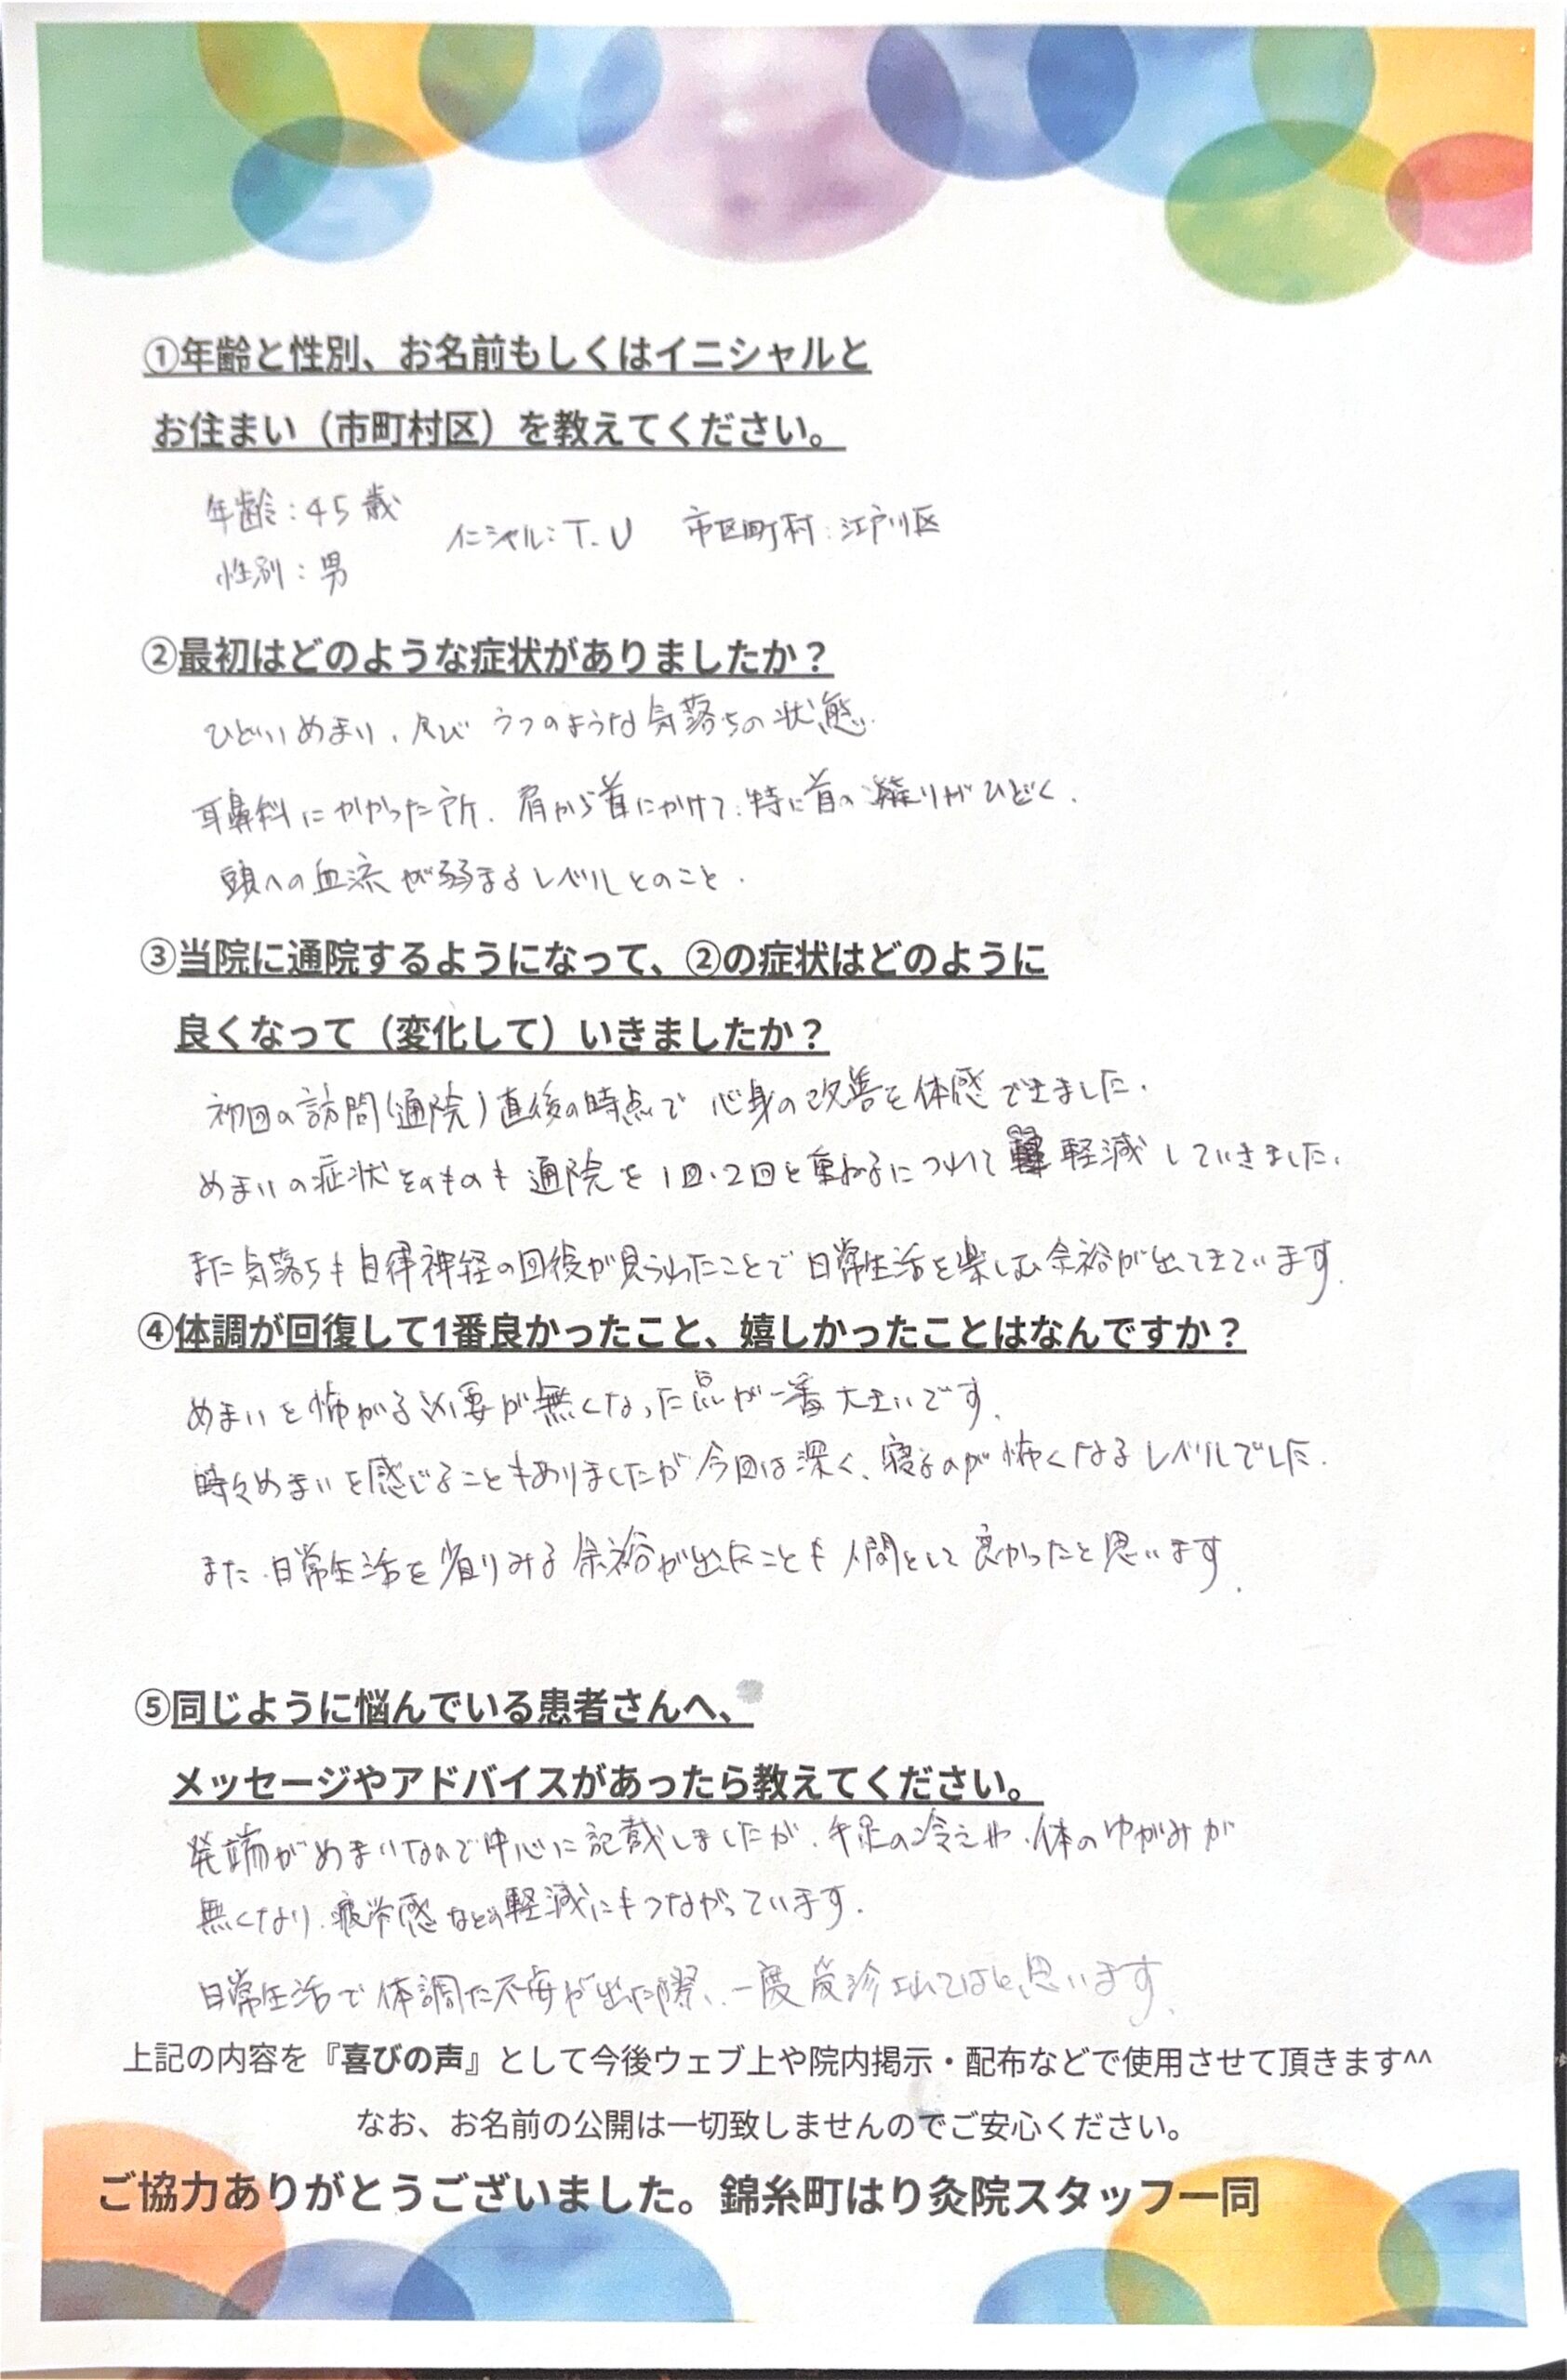 ①年齢と性別、お名前もしくはイニシャルと
お住まい（市町村区）を教えてください。
年齢：45歳
イニシャル：T.U 市区町村：江戸川区
性別：男
②最初はどのような症状がありましたか？
ひどいめまい、及び うつのような気落ちの状態.
耳鼻科にかかった所、肩から首にかけて、特に首の 凝りがひどく、
頭への血流が弱まるレベルとのこと.
③当院に通院するようになって、②の症状はどのように
良くなって（変化して）いきましたか？
初回の訪問(通院)直後の時点で 心身の改善を体感できました.
めまいの症状そのものも 通院を1回・2回と重ねるにつれて 軽減していきました.
また気落ちも自律神経の回復が見られたことで日常生活を楽しむ余裕が出てきています.
④体調が回復して1番良かったこと、嬉しかったことはなんですか？
めまいを怖がる必要が無くなった点が一番大きいです.
時々めまいを感じることもありましたが今回は深く、寝るのが怖くなるレベルでした.
また、日常生活を省りみる余裕が出たことも人間として良かったと思います.
⑤同じように悩んでいる患者さんへ、
メッセージやアドバイスがあったら教えてください。
発端がめまいなので中心に記載しましたが、手足の冷えや、体のゆがみが
無くなり、疲労感などの軽減にもつながっています.
日常生活で体調に不安が出た際、一度受診されてはと思います.
上記の内容を『喜びの声』として今後ウェブ上や院内掲示・配布などで使用させて頂きます^^
なお、お名前の公開は一切致しませんのでご安心ください。
ご協力ありがとうございました。錦糸町はり灸院スタッフ一同